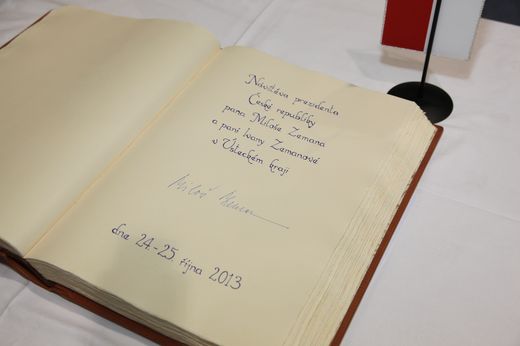 Návštěva prezidenta
České republiky
pana Miloše Zemana
a paní Ivany Zemanové
v Ústeckém kraji
Miloš Zeman
dne 24.-25 října 2013